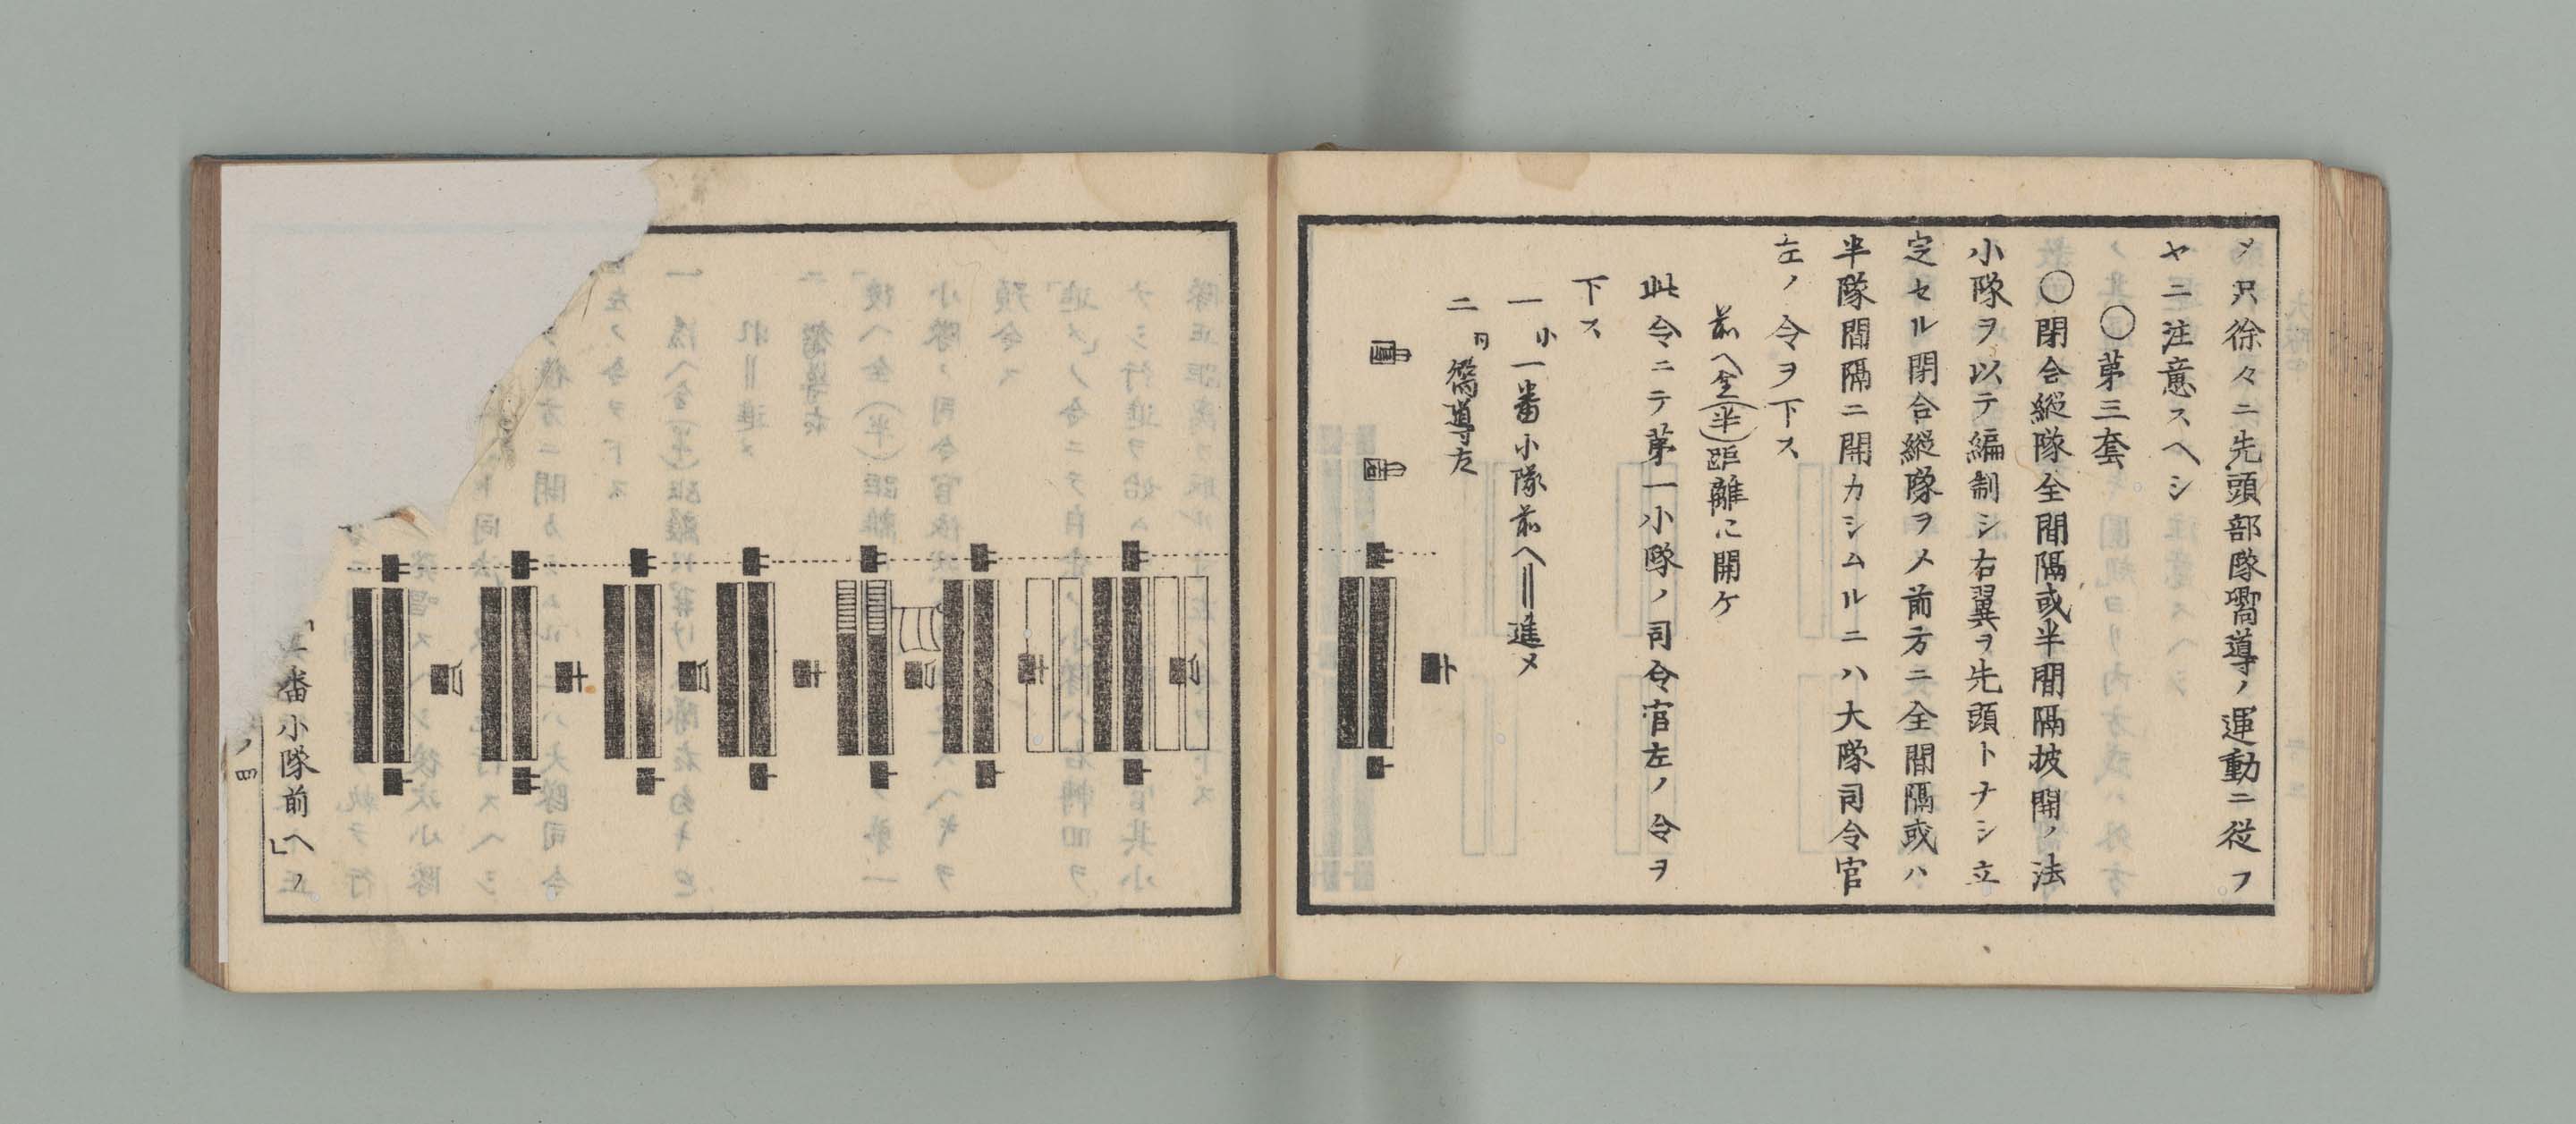 メ只徐々ニ先頭部隊嚮導ノ運動ニ従フ
ヤニ注意スヘシ
○第三套
○閉合縦隊全間隔或半間隔披開ノ法
小隊ヲ以テ編制シ右翼ヲ先頭トナシ立
定セル閉合縦隊ヲメ前方ニ全間隔或ハ
半隊間隔ニ開カシムルニハ大隊司令官
左ノ令ヲ下ス
前ヘ全(半)距離に開ケ
此令ニテ第一小隊ノ司令官左ノ令ヲ
下ス
一 小 一番小隊前ヘ‖進メ
二 同 嚮導左
「一番小隊前ヘ」ノ
ノ四